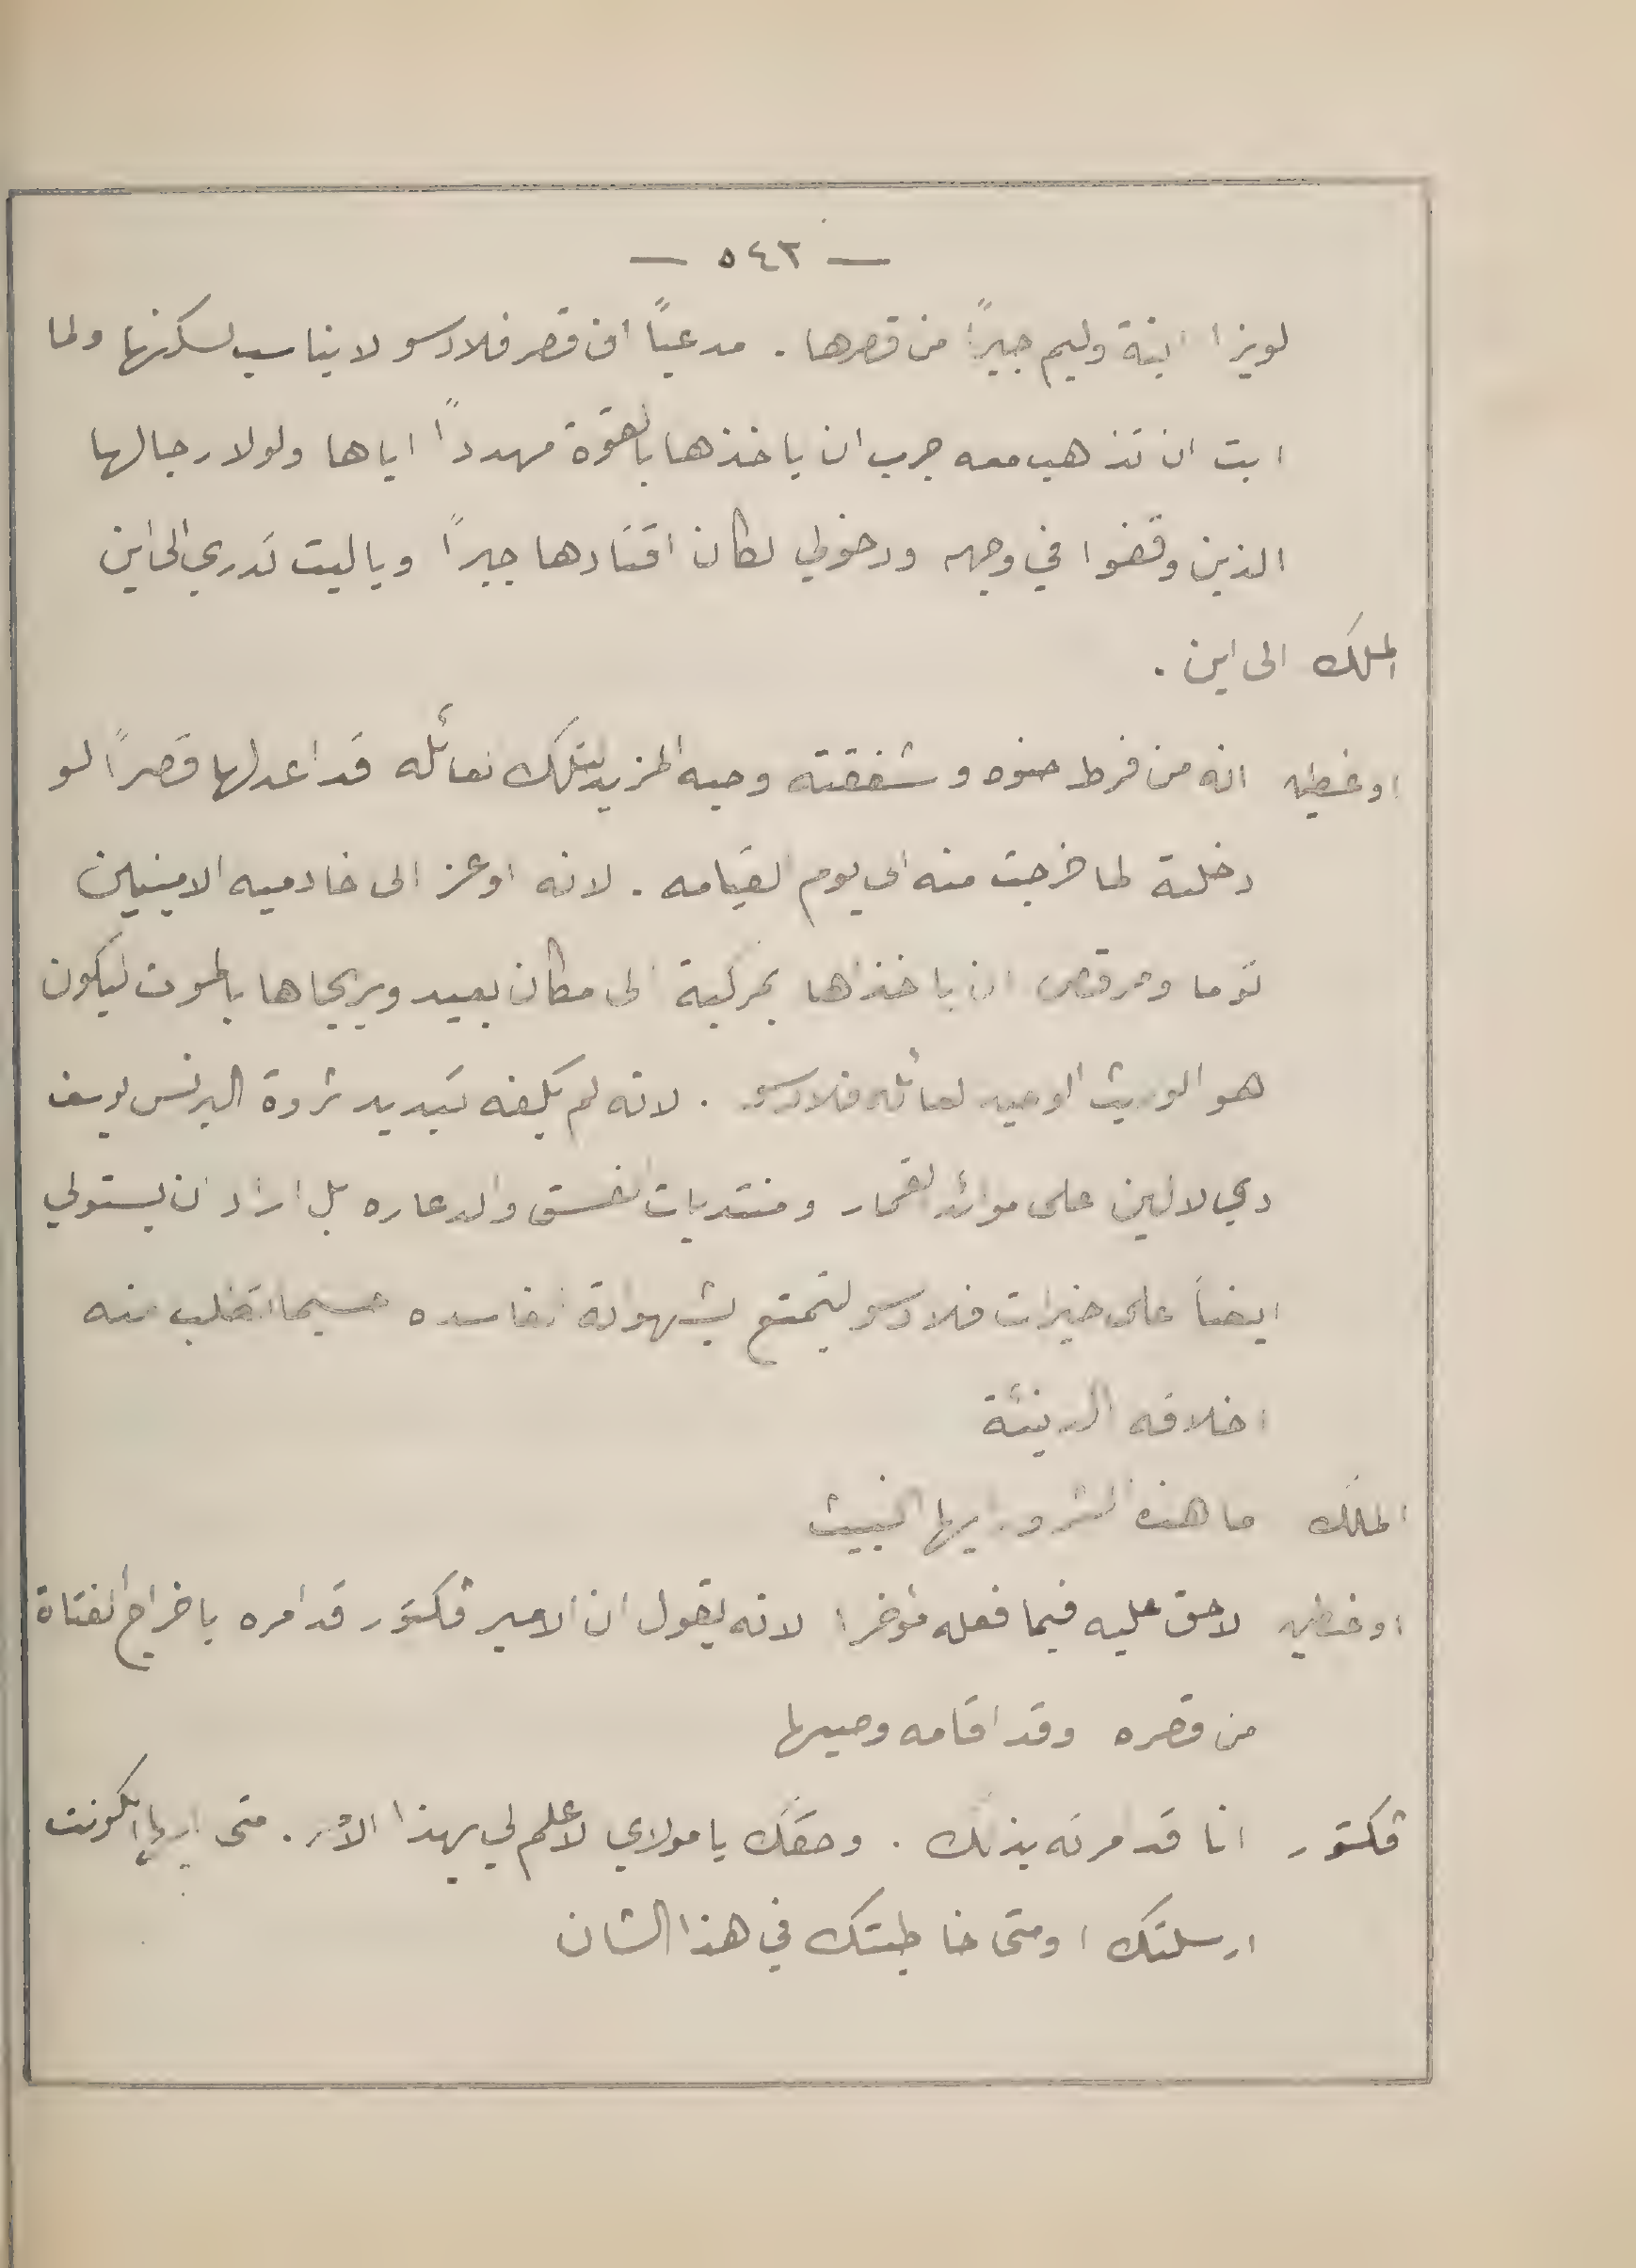 — ٥٤٢ —
لويزا ابنة وليم جبراً من قصرها . مدعياً ان قصر فلادسو لا يناسب لسكنها ولما
ابت ان تذهب معه جرب ان ياخذها بالقوة مهدداً اياها ولولا رجالها
الذين وقفوا في وجهه ودخولي لكان اقتادها جبراً وياليت تدري الى اين
الملك الى اين .
اوغسطين انه من فرط حنوه وشفقته وحبه المزيد لتلك العائله قد اعد لها قصراً لو
دخلته لما خرجت منه الى يوم القيامه . لانه اوعز الى خادميه الامينين
توما ومرقص ان ياخذاها بمركبة الى مكان بعيد ويريحاها بالموت ليكون
هو الوريث الوحيد لعائله فلادسو . لانه لم يكفه تبديد ثروة البرنس يوسف
دي لالين على موائد القمار ومنتديات الفسق والدعاره بل اراد ان يستولي
ايضاً على خيرات فلادسو ليتمتع بشهواته الفاسده حسبما تطلب منه
اخلاقه الدنيئة
الملك ما هذه الشرور ايها الخبيث
اوغسطين لا حق عليه فيما فعله مؤخرا لانه يقول ان الامير ڤكتور قد امره باخراج الفتاة
من قصره وقد اقامه وصيها
ڤكتور انا قد امرته بذلك . وحقك يا مولاي لا علم لي بهذا الامر . متى ايها الكونت
ارسلتك او متى خاطبتك في هذا الشان